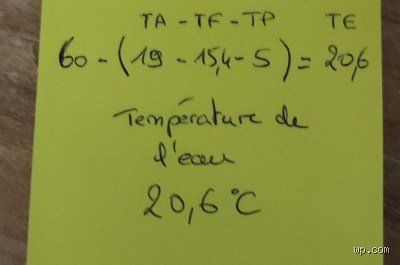 TA - TF - TP TE
60 - (19 - 15,4 - 5) = 20,6
Température de
l'eau
20,6°C
wp.com